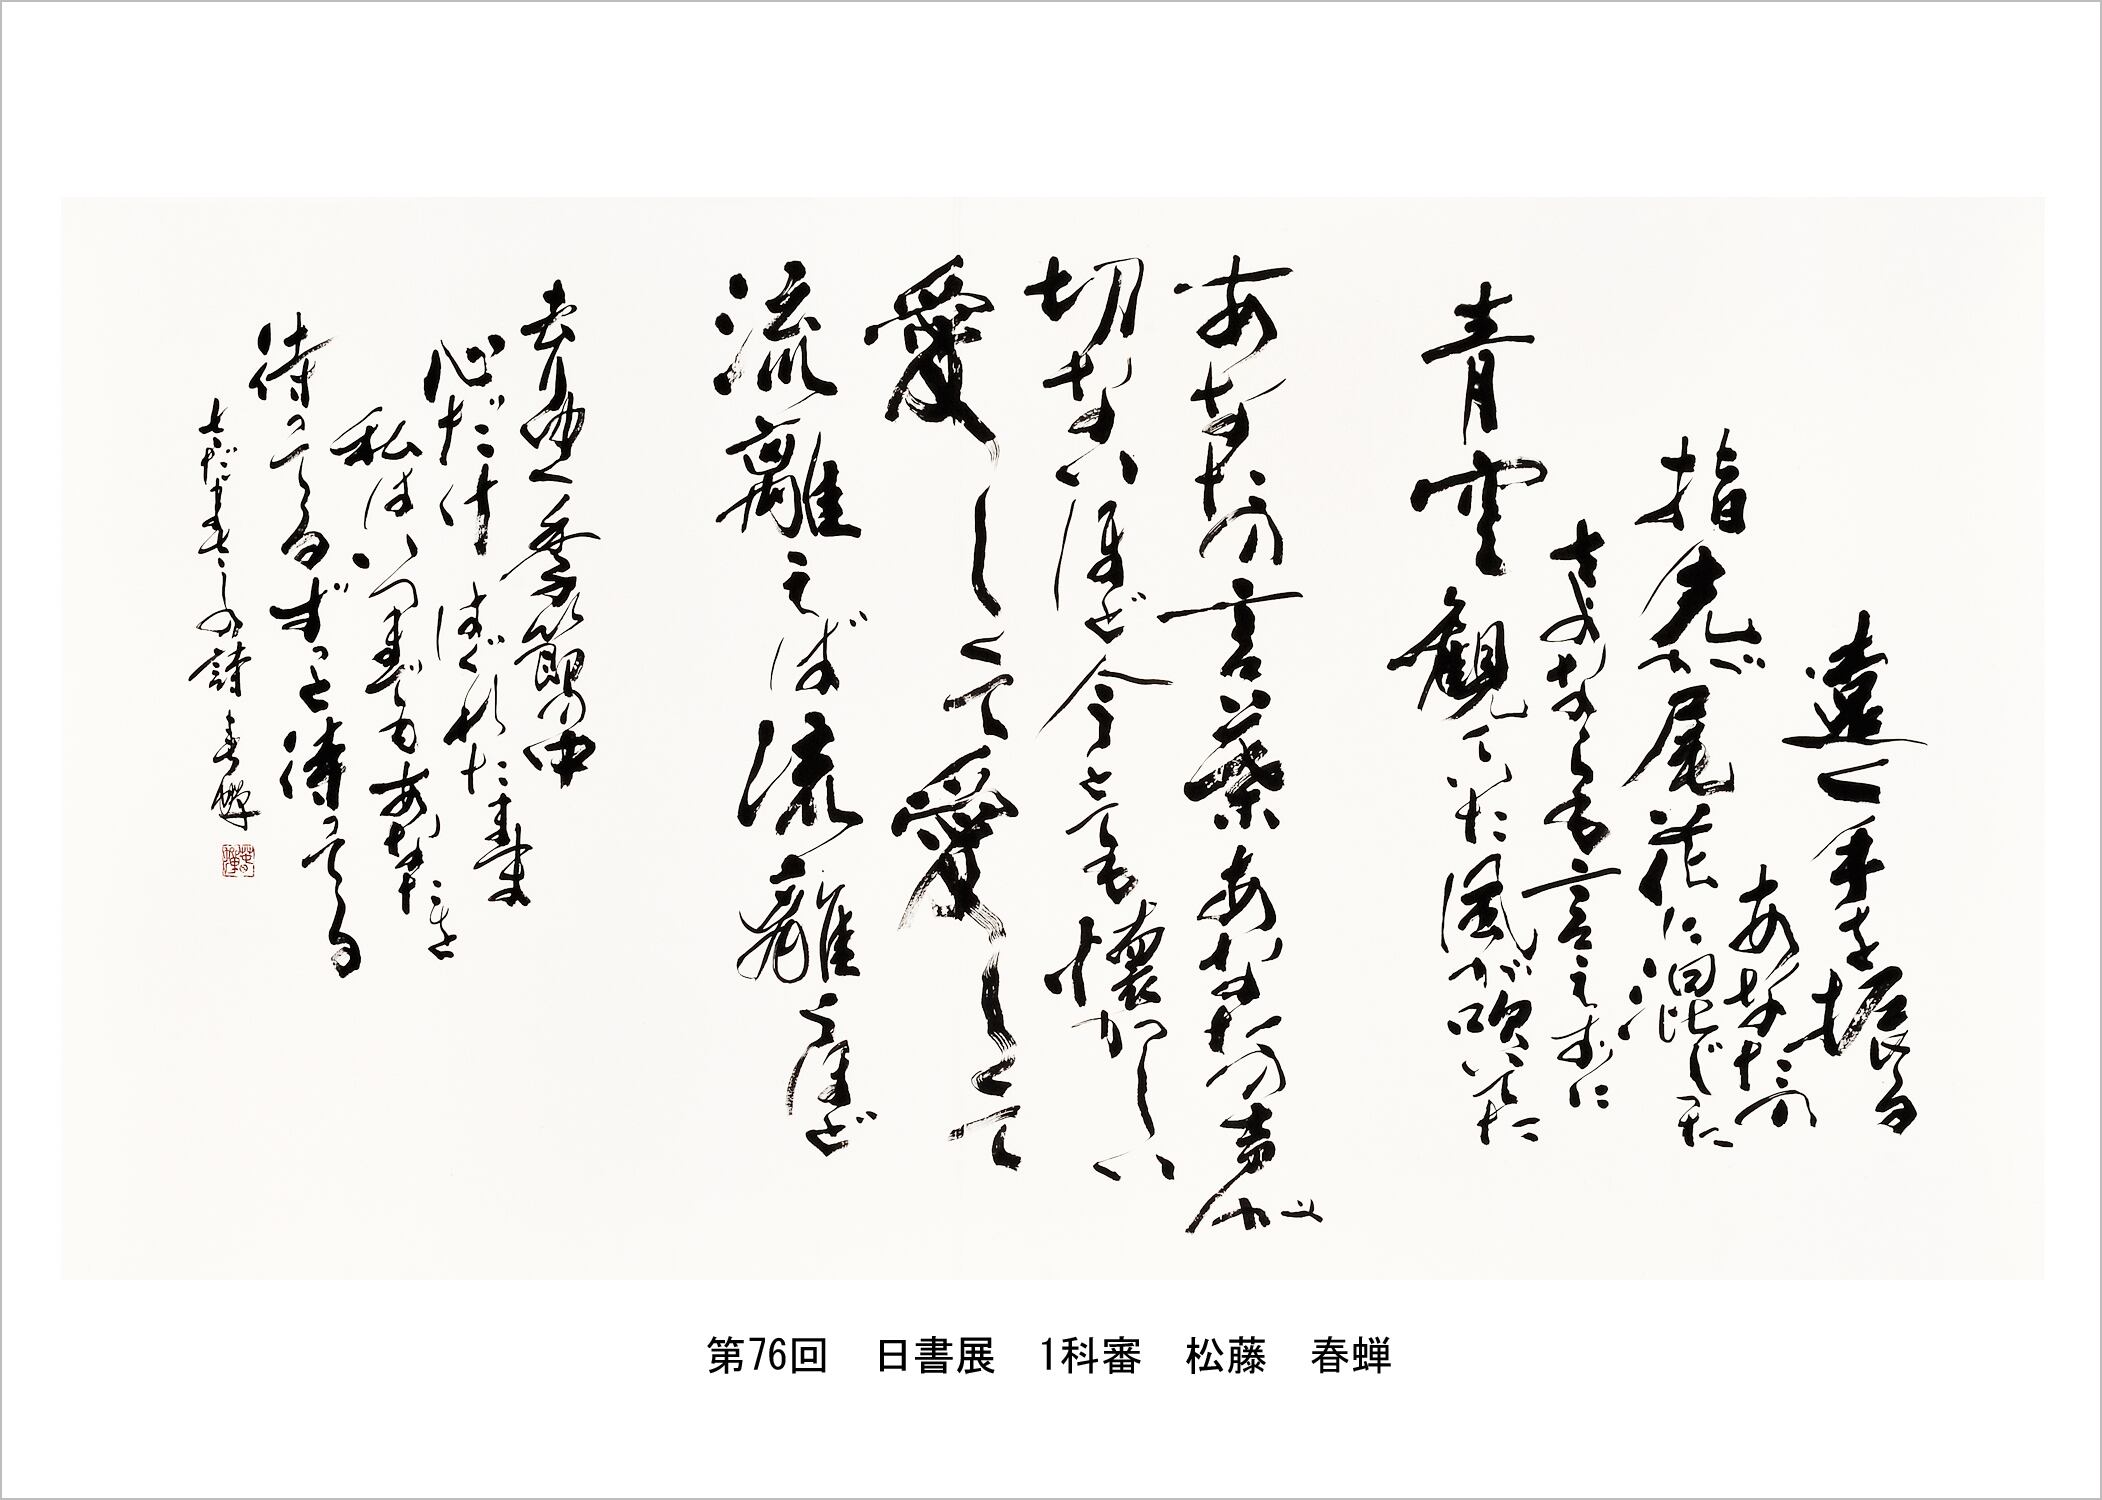 遠く手を振る
あなたの
指先が尾花に混じった
さよならも言えずに
青雲観ていた風が吹いてた
あなたの言葉あなたの声が
切ないほど今とても懐かしい
愛しくて愛しくて
流離えば流離うほど
去りゆく季節の中
心だけはぐれたまま
私はいつまでもあなたを
待ってるずっと待ってる
さだまさしの詩 春蝉
第76回 日書展 1科審 松藤 春蝉